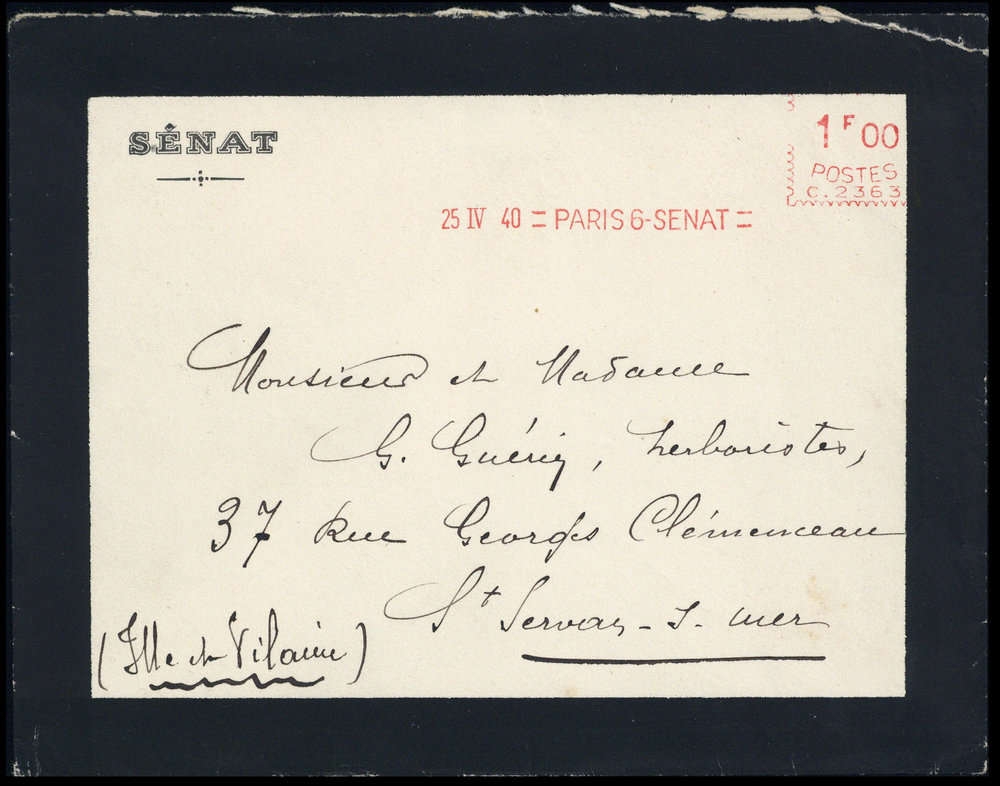 SÉNAT
1F00
POSTES
C. 2363
25 IV 40 = PARIS 6-SENAT =
Monsieur et Madame
G. Guérin, herboristes,
37 Rue Georges Clémenceau
St Servan-s-mer
(Ille et Vilaine)